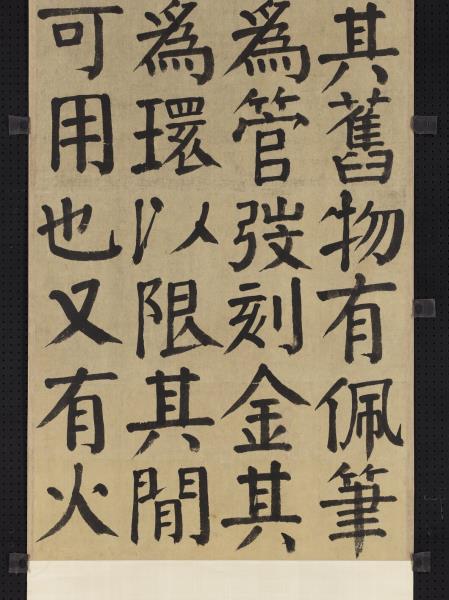 其舊物有佩筆
爲管弢刻金其
爲環以限其閒
可用也又有火